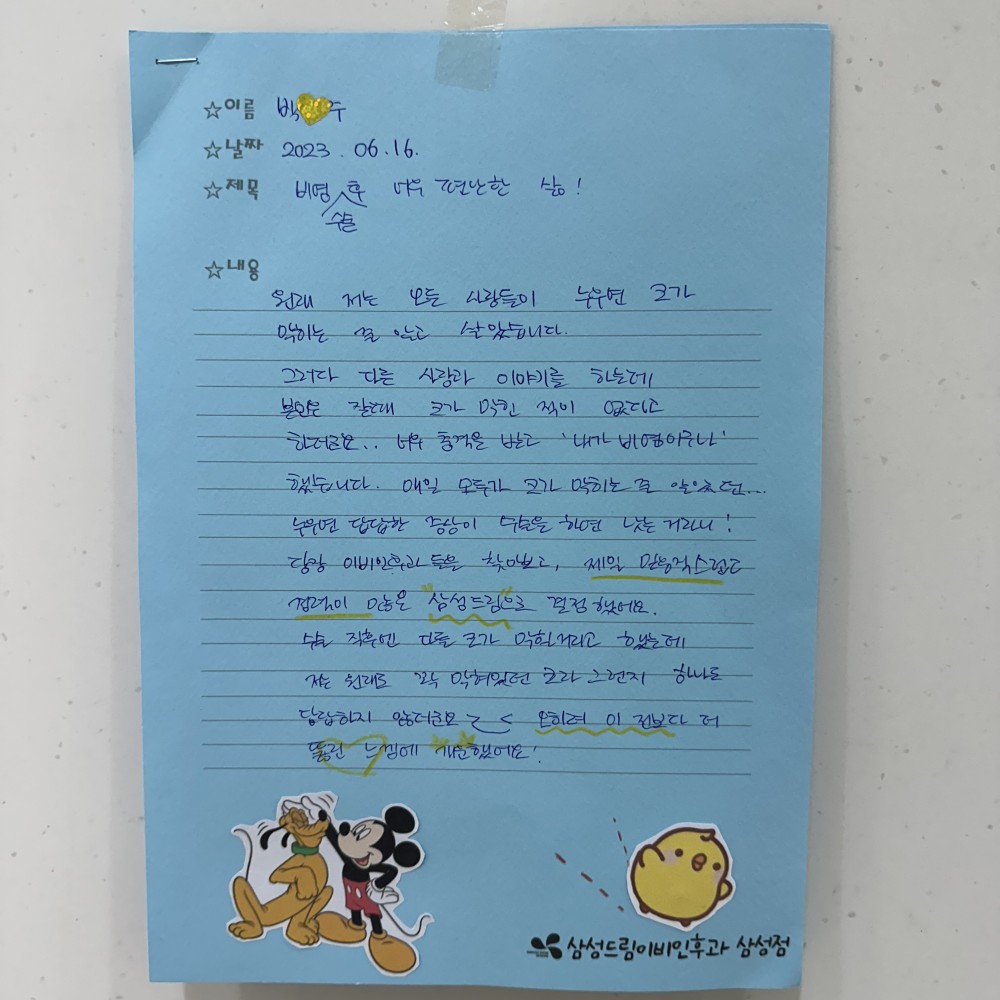 ☆이름 박💛주
☆날짜 2023. 06. 16.
☆제목 비염 수술 후 너무 편안한 삶!
☆내용
원래 저는 모든 사람들이 누우면 코가
막히는 줄 알고 살았습니다.
그러다 다른 사람과 이야기를 하는데
본인은 잘때 코가 막힌 적이 없다고
하더라고요.. 너무 충격을 받고 '내가 비염이구나'
했습니다. 매일 모두가 코가 막히는 줄 알았던...
누우면 답답한 증상이 수술을 하면 낫는 거라니!
당장 이비인후과 들을 찾아보고, 제일 믿음직스럽고
경력이 많은 "삼성드림"으로 결정 했어요.
수술 직후엔 다들 코가 막힐거라고 했는데
저는 원래도 꽉 막혀있던 코라 그런지 하나도
답답하지 않더라고요 > < 오히려 이 전보다 더
뚫린 느낌에 개운했어요!
삼성드림이비인후과 삼성점